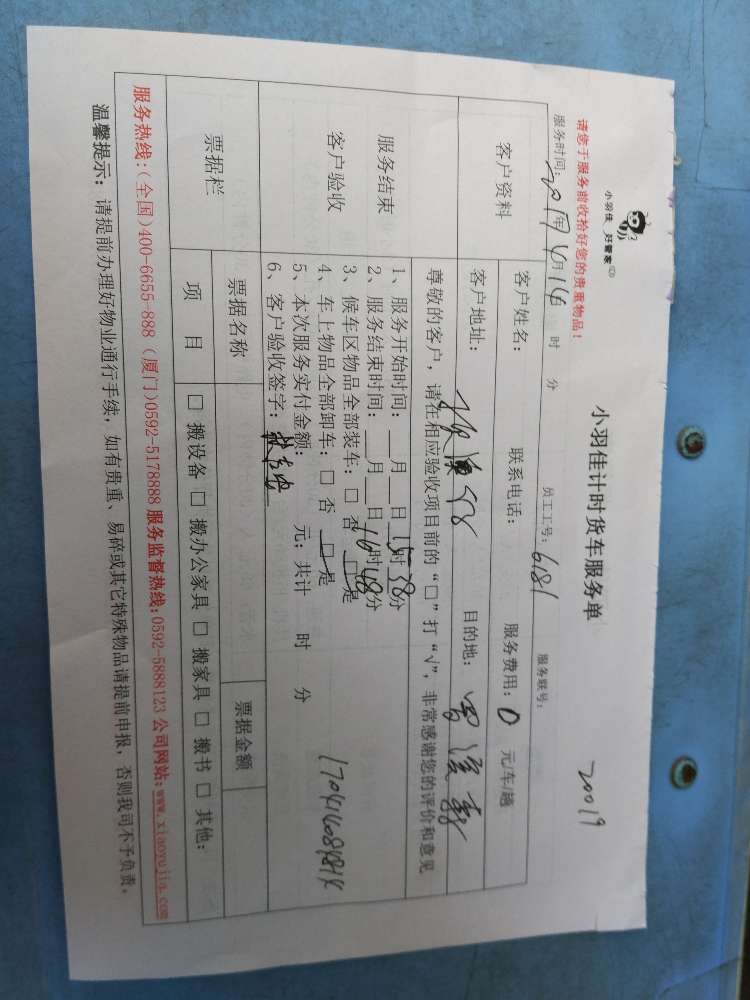 小羽佳 好管家
小羽佳计时货车服务单
20019
请您于服务前收拾好您的贵重物品!
服务时间: 年4月14 时 分 员工工号: 6181 服务联号:
客户资料
客户姓名: 联系电话: 服务费用: 0 元/车/趟
客户地址: 目的地:
服务结束
客户验收
尊敬的客户,请在相应验收项目前的“□”打“√”,非常感谢您的评价和意见
1、服务开始时间:__月__日15时38分
2、服务结束时间:__月__日16时48分
3、候车区物品全部装车:□否 □是
4、车上物品全部卸车:□否 □是
5、本次服务实付金额: 元;共计 时 分
6、客户验收签字:
票据栏
票据名称 票据金额
项目 □ 搬设备 □ 搬办公家具 □ 搬家具 □ 搬书 □ 其他:
服务热线:(全国)400-6655-888 (厦门)0592-5178888 服务监督热线:0592-5888123 公司网站:www.xiaoyujia.com
温馨提示: 请提前办理好物业通行手续,如有贵重、易碎或其它特殊物品请提前申报,否则我司不予负责。